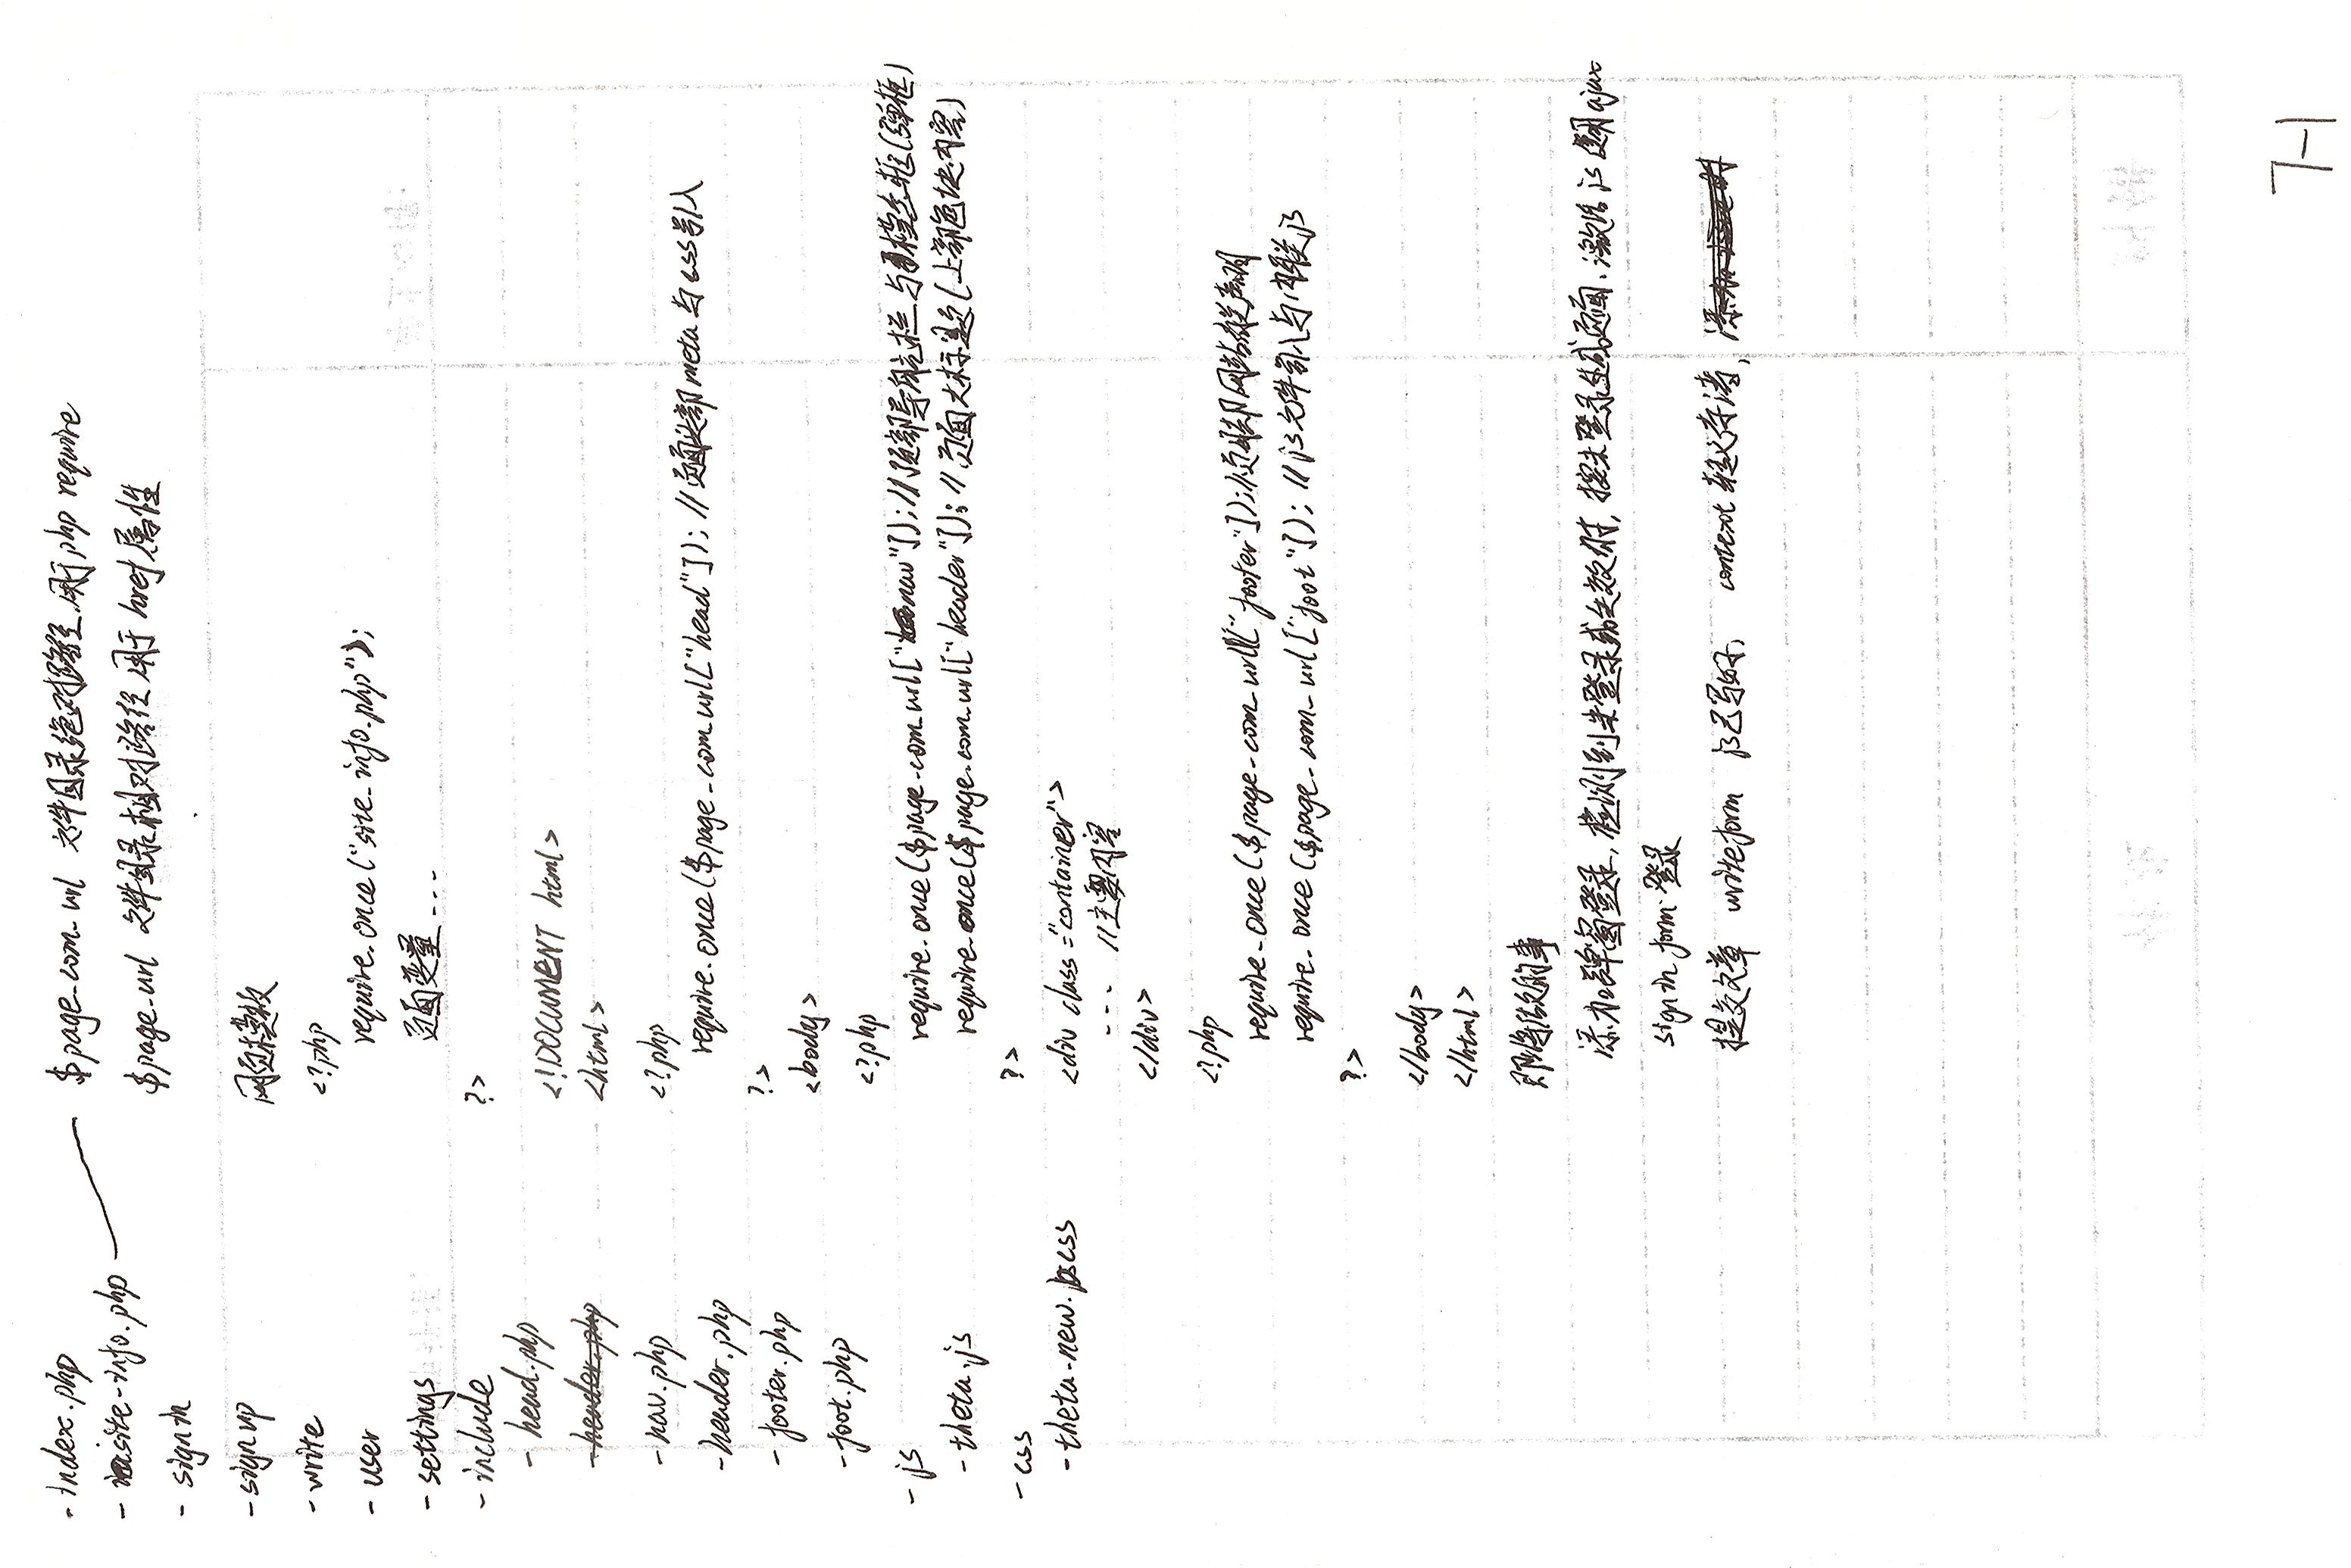 - index.php
- site-info.php
- signin
- signup
- write
- user
- settings
- include
- head.php
- header.php
- nav.php
- header.php
- footer.php
- foot.php
- js
- theta.js
- css
- theta-new.css
$page_com_url 文件目录绝对路径 用于php require
$page_url 文件目录相对路径 用于 href 属性
网页模板
<?php
require_once("site_info.php");
页面变量 ...
?>
<!DOCUMENT html>
<html>
<?php
require_once($page_com_url["head"]); //页面头部meta与css引入
?>
<body>
<?php
require_once($page_com_url["nav"]); //顶部导航栏与模态框(弹框)
require_once($page_com_url["header"]); //页面大标题(上部色块内容)
?>
<div class="container">
... //主要内容
</div>
<?php
require_once($page_com_url["footer"]); //页脚部网站相关声明
require_once($page_com_url["foot"]); //js文件引入与内联js
?>
</body>
</html>
即将做的事
添加弹窗登录,检测到未登录或失效时,按未登录生成页面.激活js 调用ajax
signin form 登录
提交文章 writeform js已写好, context 转义存储,
7-1